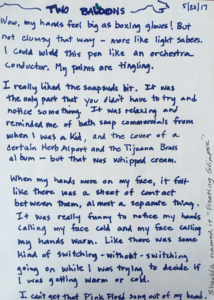 TWO BALLOONS
5/22/17
Wow, my hands feel big as boxing gloves! But
not clumsy that way - more like light sabers.
I could wield this pen like an orchestra
conductor. My palms are tingling.
I really liked the soapsuds bit. It was
the only part that you didn't have to try and
notice something. It was relaxing and
reminded me of bath soap commercials from
when I was a kid, and the cover of a
certain Herb Alpert and The Tijuana Brass
album - but that was whipped cream.
When my hands were on my face, it felt
like there was a sheet of contact
between them, almost a separate thing.
It was really funny to notice my hands
calling my face cold and my face calling
my hands warm. Like there was some
kind of switching - without - switching
going on while I was trying to decide if
I was getting warm or cold.
I can't get that Pink Floyd song out of my head